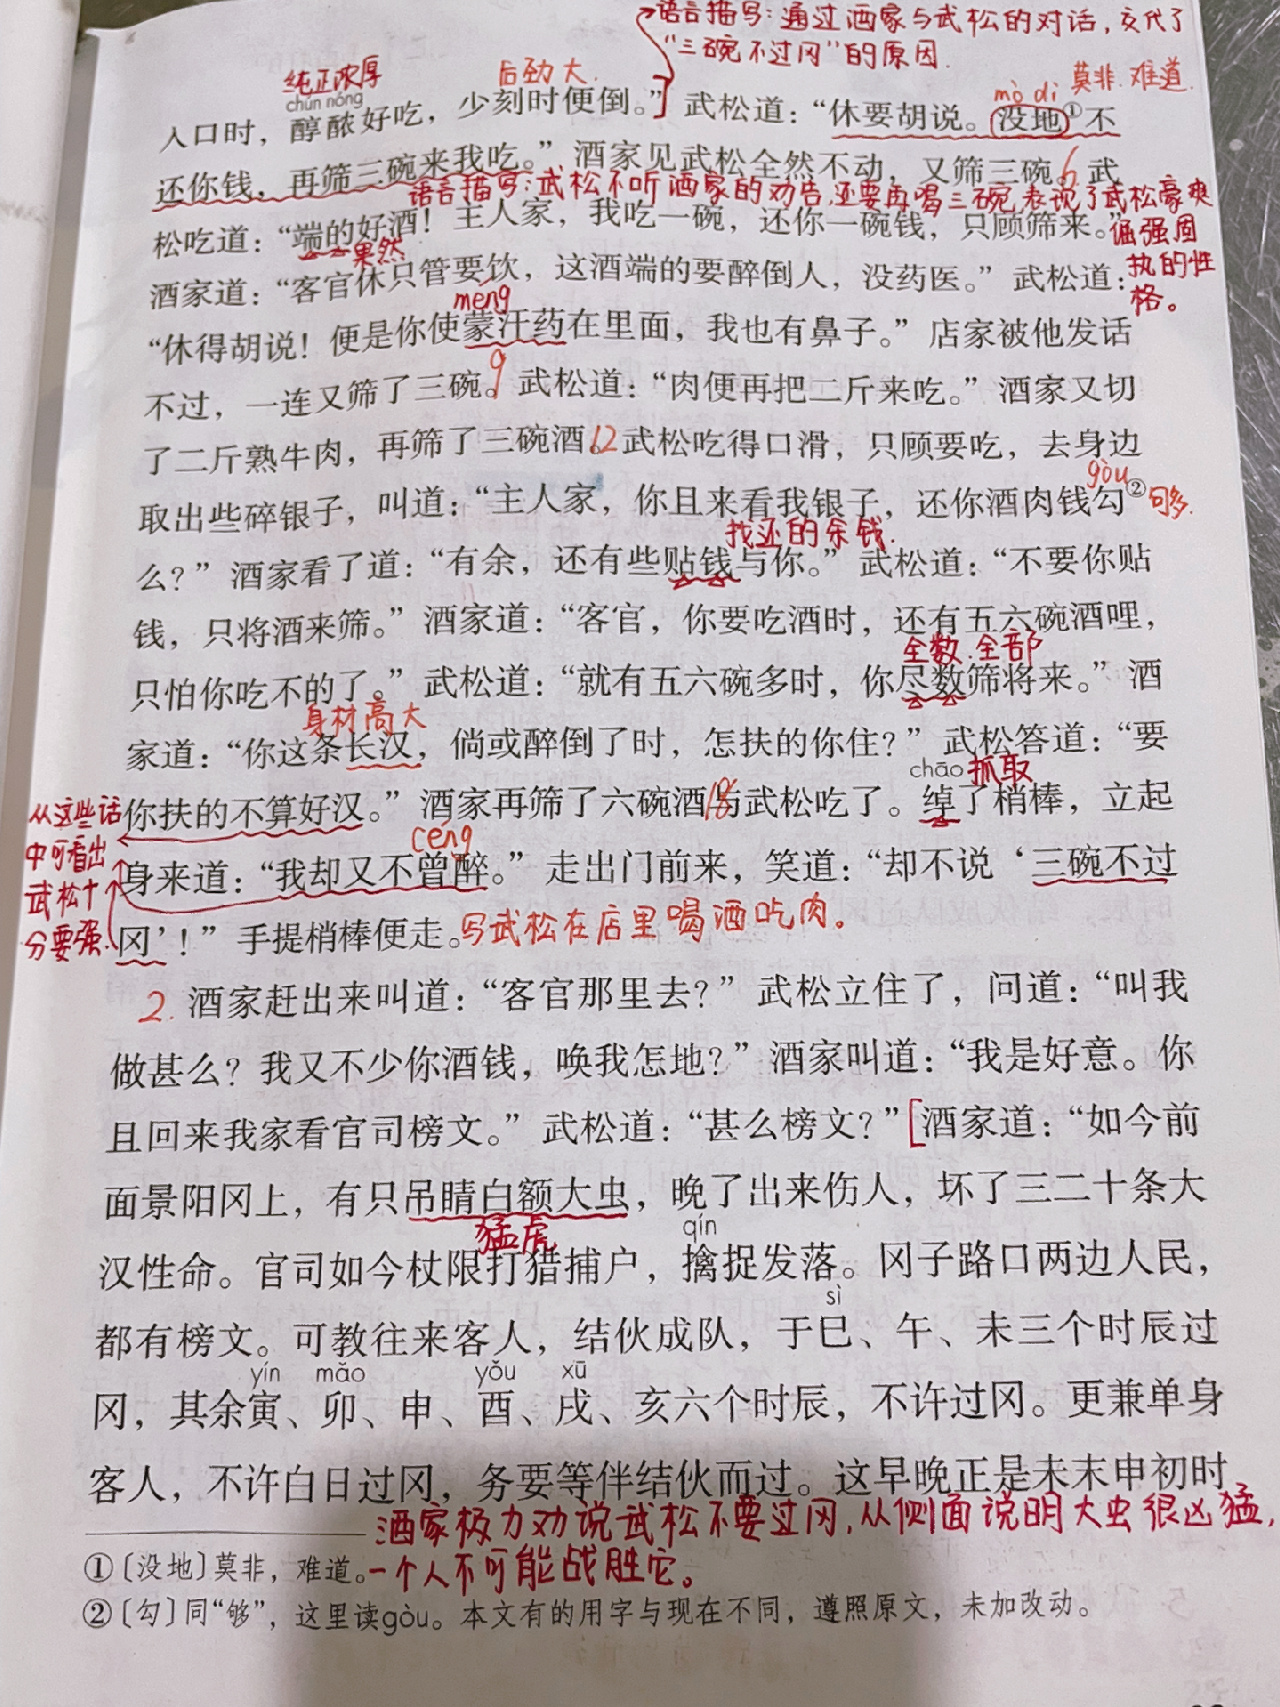 语言描写：通过酒家与武松的对话，交代了
“三碗不过冈”的原因.
纯正浓厚
后劲大.
chún nóng
mò dì
莫非.难道.
入口时，醇醲好吃，少刻时便倒。”武松道：“休要胡说。没地①不
还你钱，再筛三碗来我吃。”酒家见武松全然不动，又筛三碗。武
6
语言描写：武松不听酒家的劝告，还要再喝三碗，表现了武松豪爽
倔强固
执的性
格。
松吃道：“端的好酒！主人家，我吃一碗，还你一碗钱，只顾筛来。”
果然
酒家道：“客官休只管要饮，这酒端的要醉倒人，没药医。”武松道：
meng
“休得胡说！便是你使蒙汗药在里面，我也有鼻子。”店家被他发话
9
不过，一连又筛了三碗。武松道：“肉便再把二斤来吃。”酒家又切
了二斤熟牛肉，再筛了三碗酒。武松吃得口滑，只顾要吃，去身边
12
gòu
取出些碎银子，叫道：“主人家，你且来看我银子，还你酒肉钱勾②
够.
找还的余钱.
么？”酒家看了道：“有余，还有些贴钱与你。”武松道：“不要你贴
钱，只将酒来筛。”酒家道：“客官，你要吃酒时，还有五六碗酒哩，
全数.全部
只怕你吃不的了。”武松道：“就有五六碗多时，你尽数筛将来。”酒
身材高大
家道：“你这条长汉，倘或醉倒了时，怎扶的你住？”武松答道：“要
chāo 抓取
你扶的不算好汉。”酒家再筛了六碗酒与武松吃了。绰了梢棒，立起
18
从这些话
中可看出
武松十
分要强.
céng
身来道：“我却又不曾醉。”走出门前来，笑道：“却不说‘三碗不过
冈’！”手提梢棒便走。
写武松在店里喝酒吃肉。
2. 酒家赶出来叫道：“客官那里去？”武松立住了，问道：“叫我
做甚么？我又不少你酒钱，唤我怎地？”酒家叫道：“我是好意。你
且回来我家看官司榜文。”武松道：“甚么榜文？”酒家道：“如今前
面景阳冈上，有只吊睛白额大虫，晚了出来伤人，坏了三二十条大
猛虎
qín
汉性命。官司如今杖限打猎捕户，擒捉发落。冈子路口两边人民，
sì
都有榜文。可教往来客人，结伙成队，于巳、午、未三个时辰过
yín mǎo yǒu xū
冈，其余寅、卯、申、酉、戌、亥六个时辰，不许过冈。更兼单身
客人，不许白日过冈，务要等伴结伙而过。这早晚正是未末申初时
酒家极力劝说武松不要过冈，从侧面说明大虫很凶猛，
一个人不可能战胜它。
①〔没地〕莫非，难道。
②〔勾〕同“够”，这里读gòu。本文有的用字与现在不同，遵照原文，未加改动。